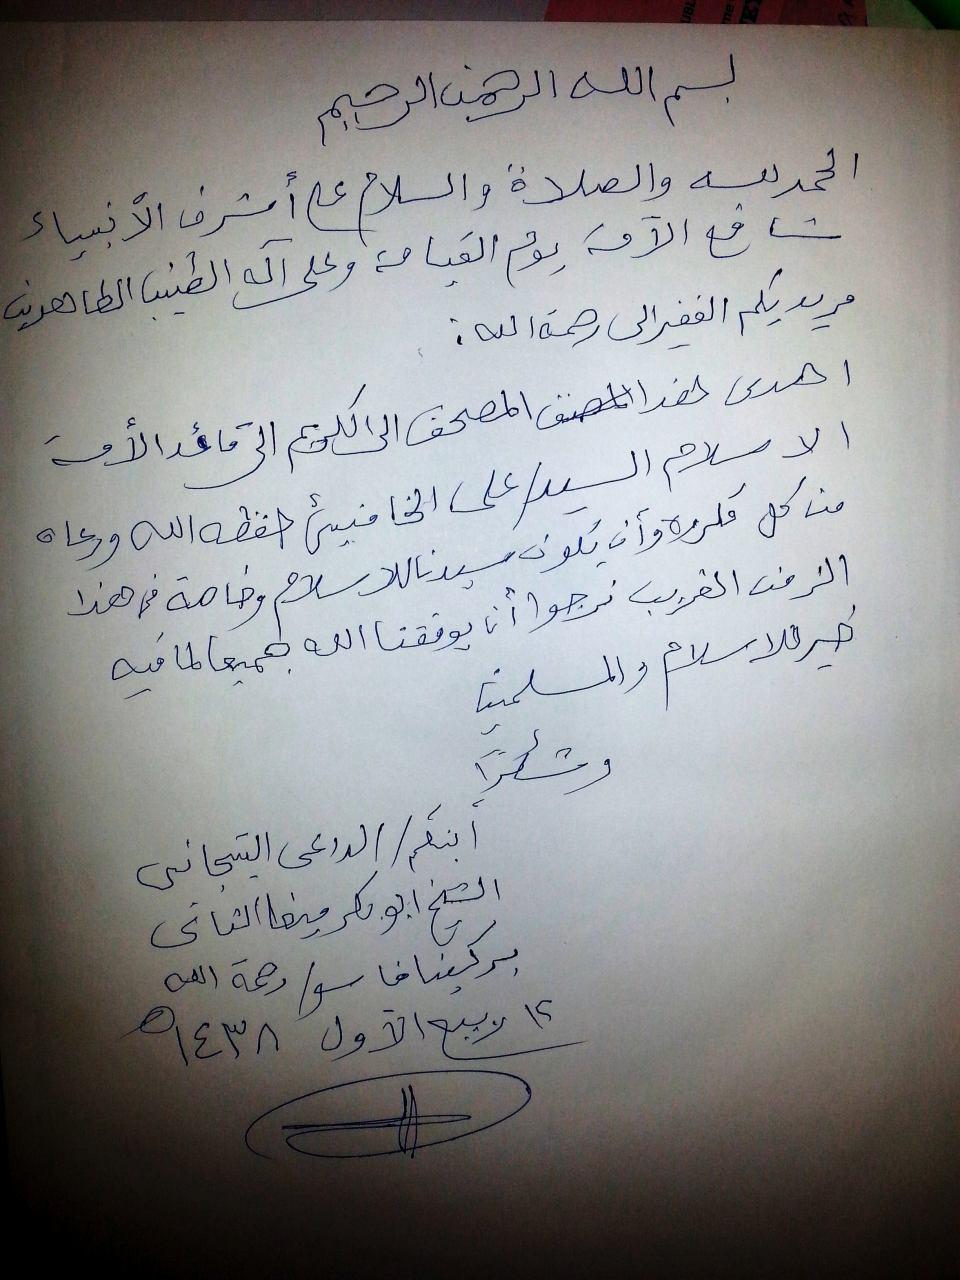 بسم الله الرحمن الرحيم
الحمد لله والصلاة والسلام على أشرف الأنبياء
شافع الأمة يوم القيامة وعلى آله الطيبين الطاهرين
مريديكم الفقير الى رحمة الله :
اهدى هذا المصحف الى الكريم الى قائد الأمة
الاسلام السيد/ على الخامنيئ حفظه الله ورعاه
من كل مكروه وأن يكون سيدنا للاسلام وخاصة في هذا
الزمن الغريب نرجوا أن يوفقنا الله جميعا لما فيه
خير للاسلام والمسلمين
وشكرًا
أبنكم/ الداعى التيجانى
الشيخ ابوبكر ميغا الثانى
بركينا فاسو/ رحمة الله
١٢ ربيع الأول ١٤٣٨ه